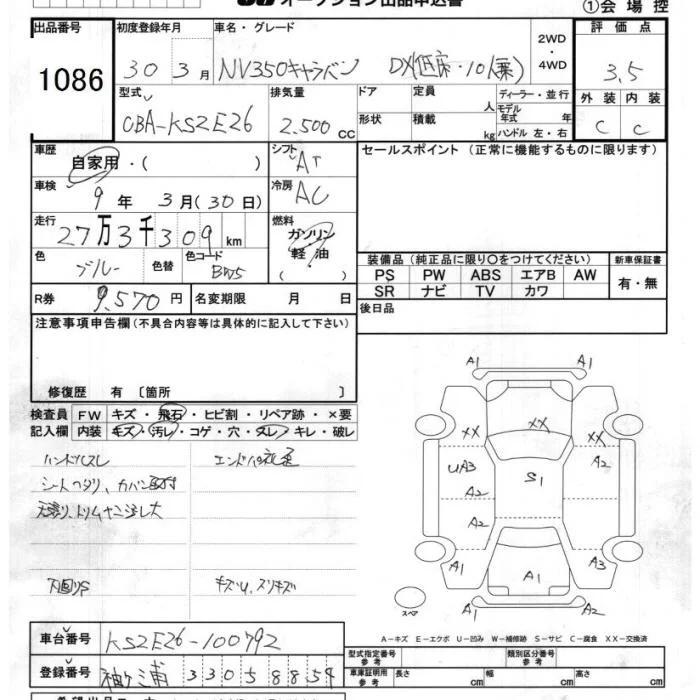 オークション出品申込書
①会場控
出品番号
1086
初度登録年月
30 3月
車名・グレード
NV350キャラバン DX(低床・10人乗)
2WD
・
4WD
評価点
3.5
外装 内装
C C
型式
CBA-KS2E26
排気量
2.500 CC
ドア 定員 人
形状 積載 kg
ディーラー・並行
モデル年式 年
ハンドル 左・右
車歴
自家用・( )
シフト
AT
車検
9年 3月(30日)
冷房
AC
走行
27万3千309km
燃料
ガソリン
軽油
・( )
色
ブルー
色替
色コード
BW5
R券
9,570円
名変期限 月 日
セールスポイント (正常に機能するものに限ります)
装備品(純正品に限り〇をつけてください)
PS PW ABS エアB AW
SR ナビ TV カワ
新車保証書
有・無
後日品
注意事項申告欄(不具合内容等は具体的に記入して下さい)
修復歴 有 〔箇所 〕
検査員記入欄
FW キズ・飛石・ヒビ割・リペア跡・×要
内装 キズ・汚レ・コゲ・穴・スレ・キレ・破レ
ハンドルスレ
シートヘタリ、カバン
キズU、スリキズ
A1 A1
XX
XX XX
UA3 A2
S1
A2 A2
A2
A1 A3
A1
A1 A1
スペア
A−キズ E−エクボ U−凹み W−補修跡 S−サビ C−腐食 XX−交換済
車台番号
KS2E26-100792
登録番号
袖ヶ浦 330 5 8854
型式指定番号
参考
類別区分番号
参考
車庫証明用
参考
長さ cm 幅 cm 高さ cm